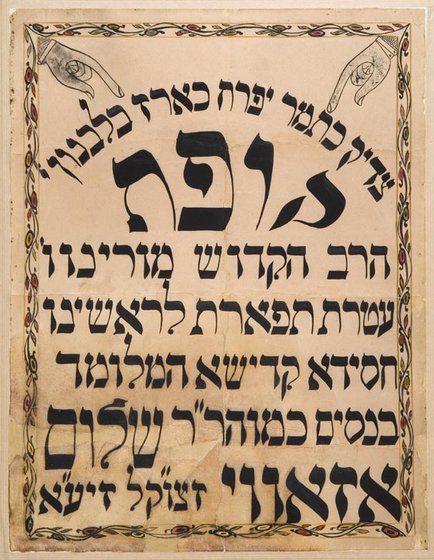 צדיק כתמר יפרח כארז בלבנון י'
מופת
הרב הקדוש מורינו ו
עטרת תפארת לראשינו
חסידא קדישא המלומד
בנסים כמוהר"ר שלום
אזאווי זצו"קל זיע"א